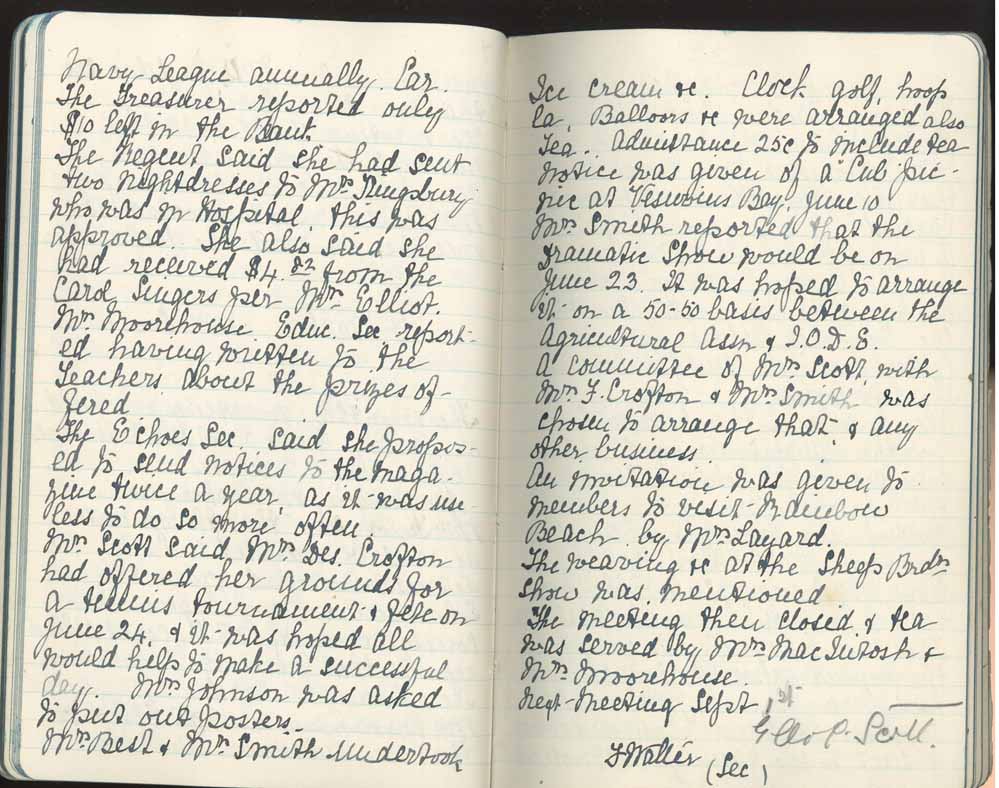 Navy League annually. Car.
The Treasurer reported only
$10 left in the Bank.
The Regent said she had sent
two Nightdresses to Mrs Kingsbury
who was in Hospital, this was
approved. She also said she
had received $4.82 from the
Carol Singers per Mrs Elliot.
Mrs Moorehouse Educ. Sec. report-
ed having written to the
Teachers about the prizes of-
fered
The Echoes Sec. said she propos-
ed to send notices to the Maga-
zine twice a year, as it was use-
less to do so more often.
Mrs Scott said Mrs Des. Crofton
had offered her grounds for
a tennis tournament & fete on
June 24, & it was hoped all
would help to make a successful
day. Mrs Johnson was asked
to put out posters.
Mrs Best & Mrs Smith undertook
Ice cream &c. Clock golf, hoop
la, Balloons &c were arranged also
Tea. Admittance 25c to include tea
Notice was given of a Cub pic-
nic at Vesuvius Bay, June 10
Mrs Smith reported that the
Dramatic Show would be on
June 23. It was hoped to arrange
it on a 50-50 basis between the
Agricultural Assn & I.O.D.E.
A committee of Mrs Scott, with
Mrs F. Crofton & Mrs Smith was
chosen to arrange that, & any
other business.
An invitation was given to
members to visit Rainbow
Beach by Mrs Layard.
The weaving &c at the Sheep Brdrs
Show was mentioned.
The meeting then closed & tea
was served by Mrs MacIntosh &
Mrs Moorehouse.
Next Meeting Sept 1st
Scott.
F Walter (Sec)